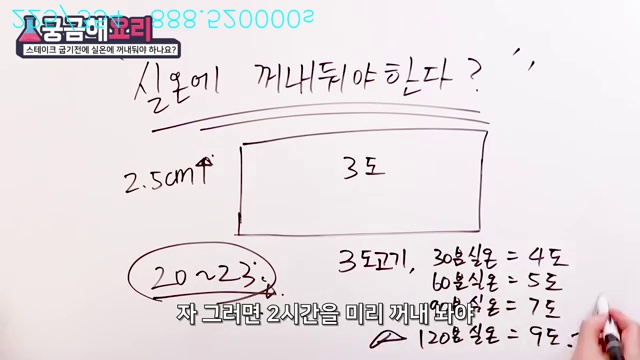 888.520000s
궁금해요리
스테이크 굽기전에 실온에 꺼내둬야 하나요?
실온에 꺼내둬야한다?
2.5cm↑
3도
20~23도
3도고기, 30분실온 = 4도
60분실온 = 5도
90분실온 = 7도
120분실온 = 9도
자 그러면 2시간을 미리 꺼내 놔야